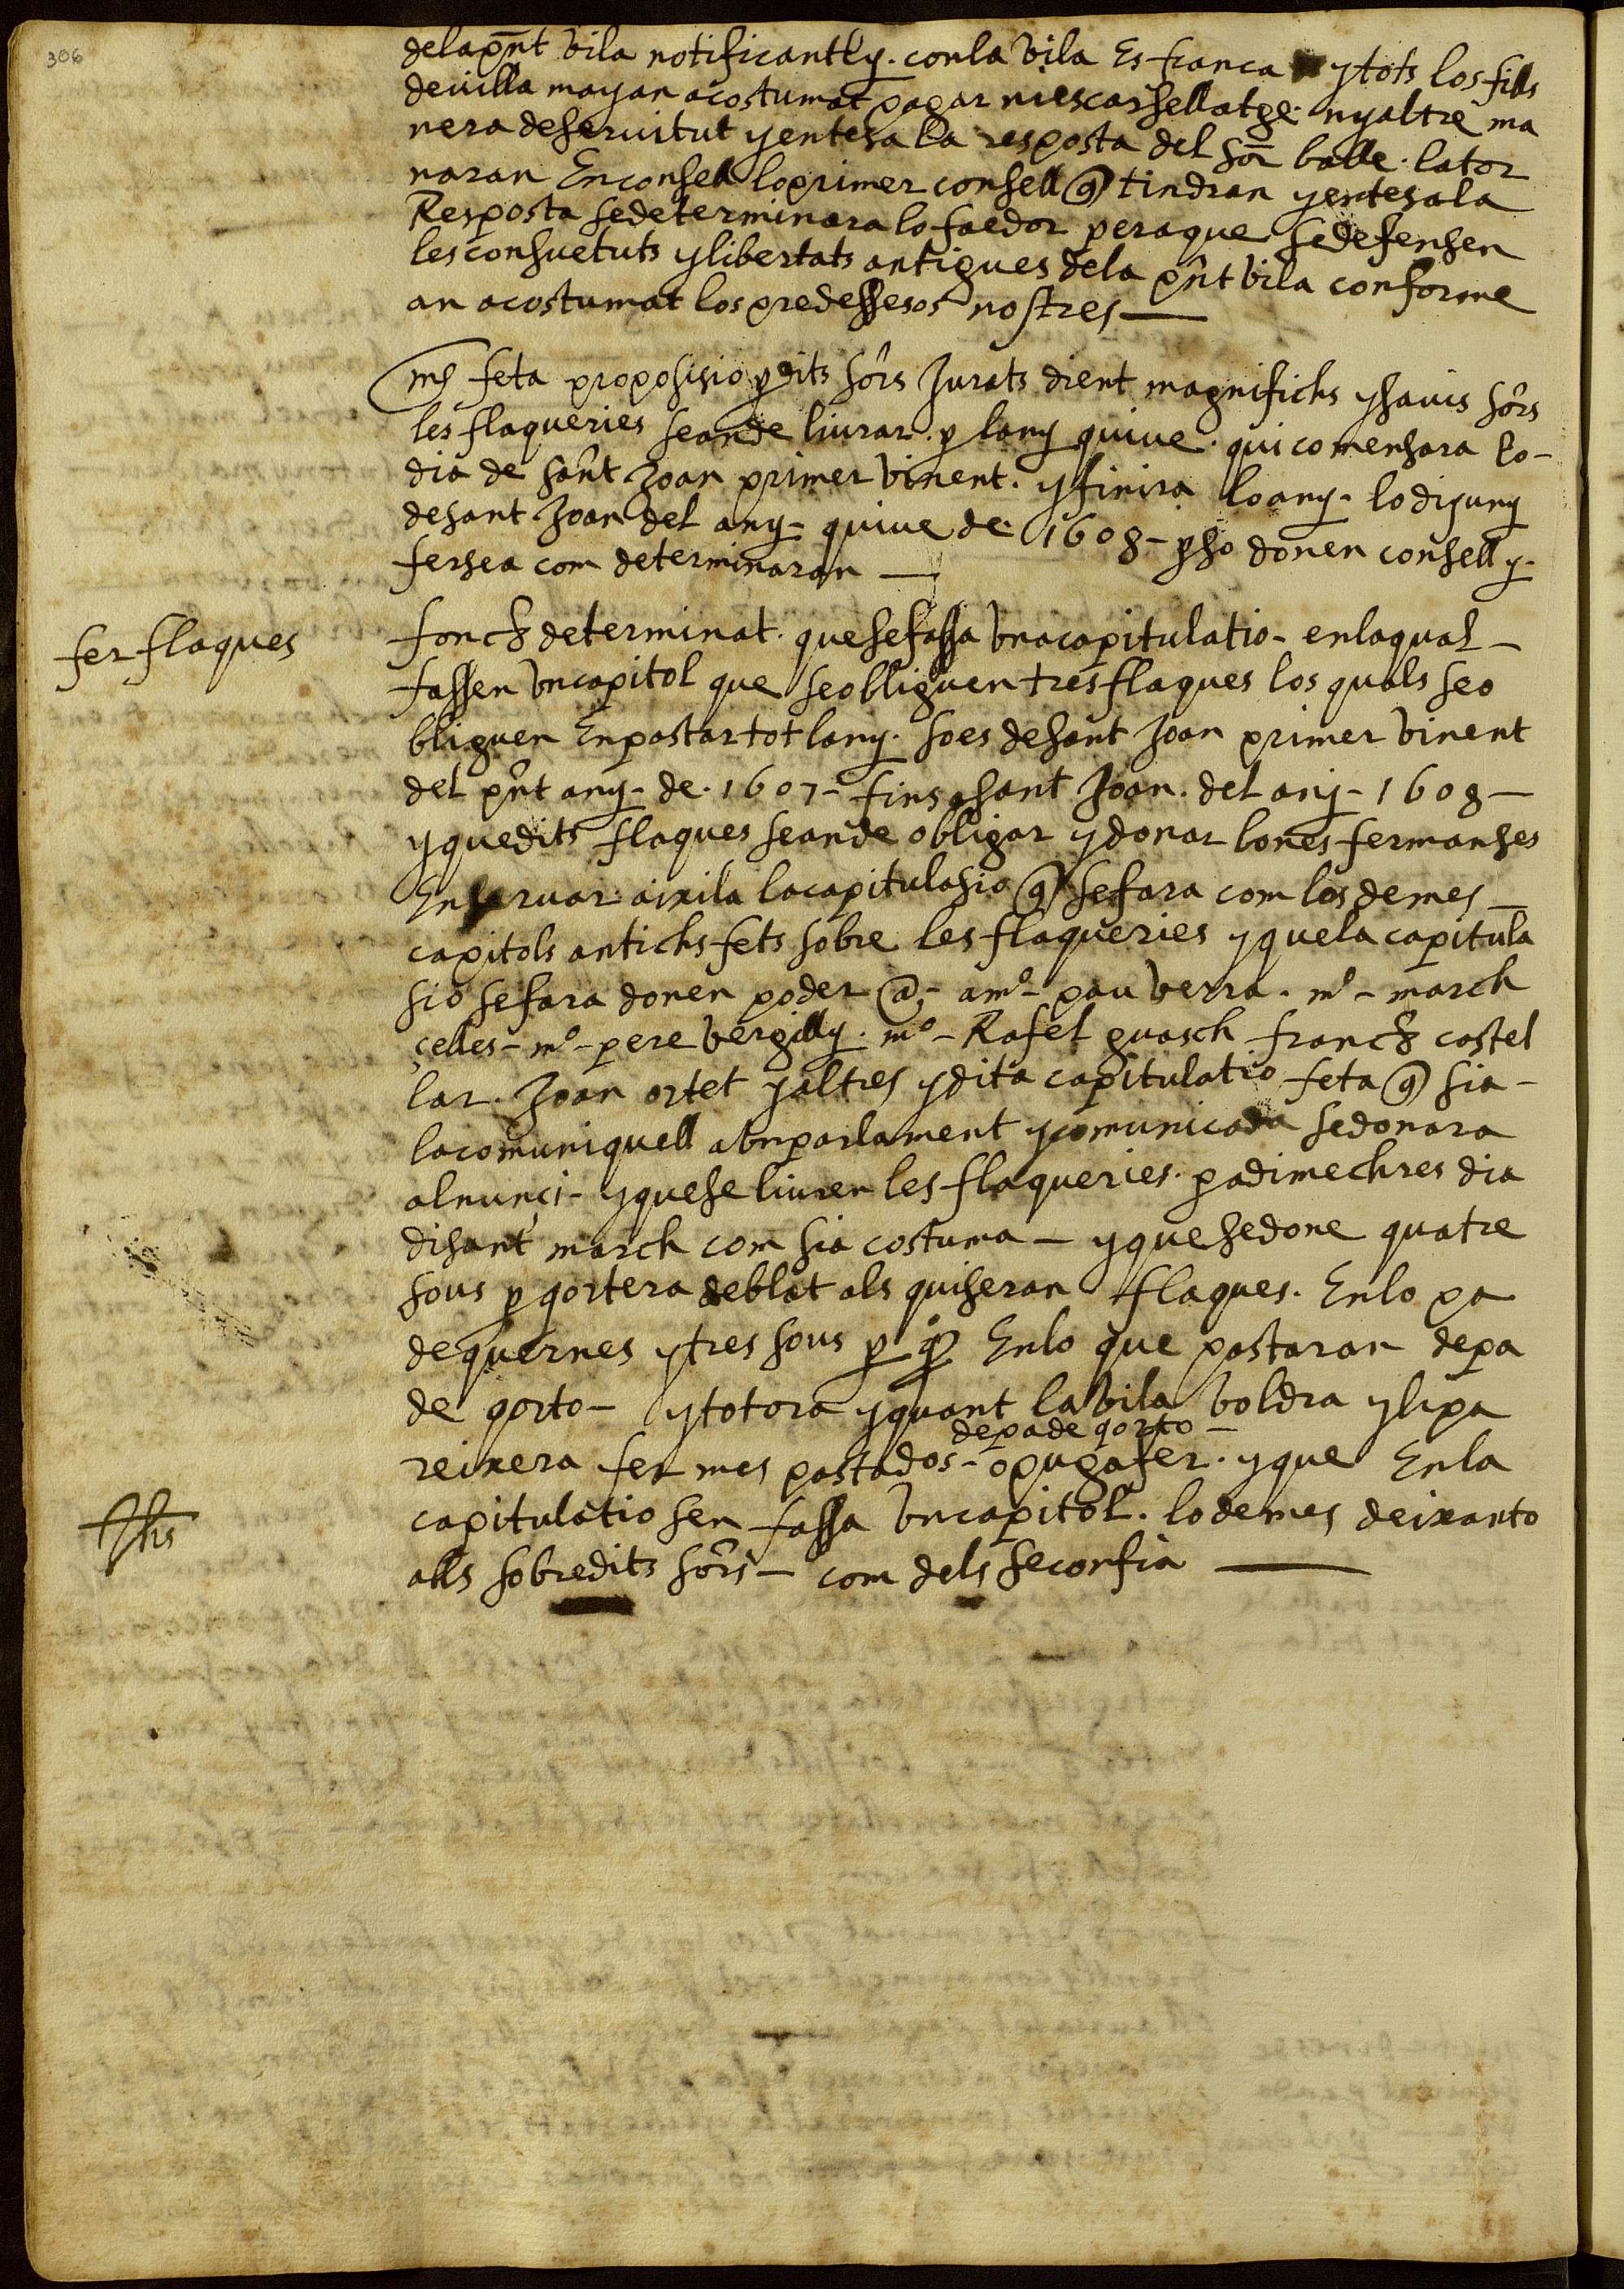 306
dela pnt vila notificantly. con la vila Es franca y tots los fills
de villa mayan acostumat pagar niescarsellatge. ny altre ma
nera de servitut y entesa la resposta del Sor balle. la tor
naran En consell lo primer consell q tindran y entesa la
Resposta se determinara lo faedor pera que se defensen
les consuetuts y libertats antigues dela pnt vila conforme
an acostumat los predessesos nostres —
ms feta proposisio p dits sors Jurats dient magnifichs y savis sors
les flaqueries se an de liurar. p lany qui ve. qui comensara lo-
dia de sant Joan primer vinent. y finira lo any. lo di juny
de sant Joan del any- qui ve de 1608- p so donen consell y.
fer sea com determinaran —
fer flaques
fonch determinat. que se fassa vna capitulatio- en la qual-
fassen vn capitol que se obliguen tres flaques los quals se o
bliguen En pastar tot lany. so es de sant Joan primer vinent
del pnt any- de. 1607- fins a sant Joan. del any- 1608-
y que dits flaques se an de obligar y donar bones fermanses
En servar aixi la la capitulasio q se fara com los demes-
capitols antichs fets sobre les flaqueries y que la capitula
sio se fara donen poder a- a mo- pau verra. mo- march
çelles- mo- pere vergilly. mo- Rafel guasch franch castel
lar. Joan ortet y altres y dita capitulatio feta q sia-
la comuniquell a vn parlament y comunicada se donara
al nunçi- y que se liuren les flaqueries. p a dimechres dia
di sant march com sia costuma- y que se done quatre
sous p qortera de blat als qui seran flaques. En lo pa
de quernes y tres sous p qo En lo que pastaran de pa
de qorto- y tot ora y quant la vila voldra y li pa
de pa de qorto-
reixera fer mes pastados- o puga fer. y que En la
capitulatio sen fassa vn capitol. lo demes deixanto
Jhs
alls sobredits sors- com dels se confia —